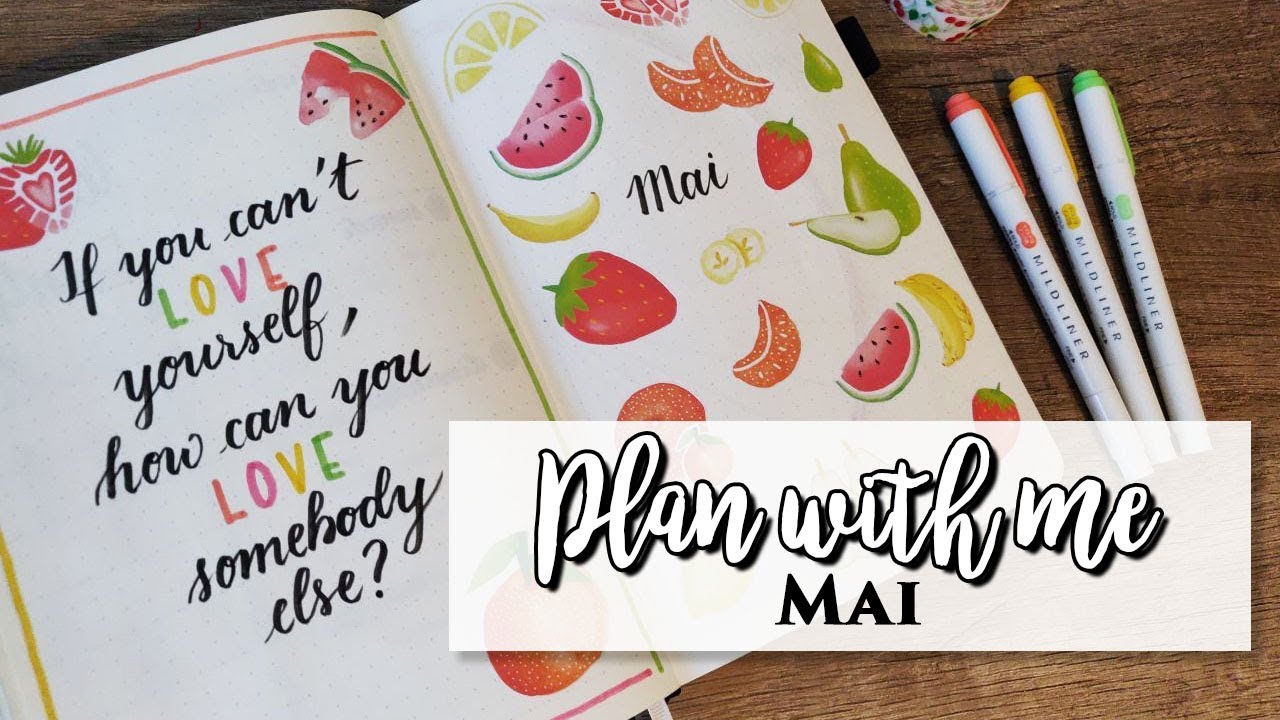 If you can't
LOVE
yourself,
how can you
LOVE
somebody
else?
Mai
MILDLINER
MILDLINER
MILDLINER
Plan with me
MAI